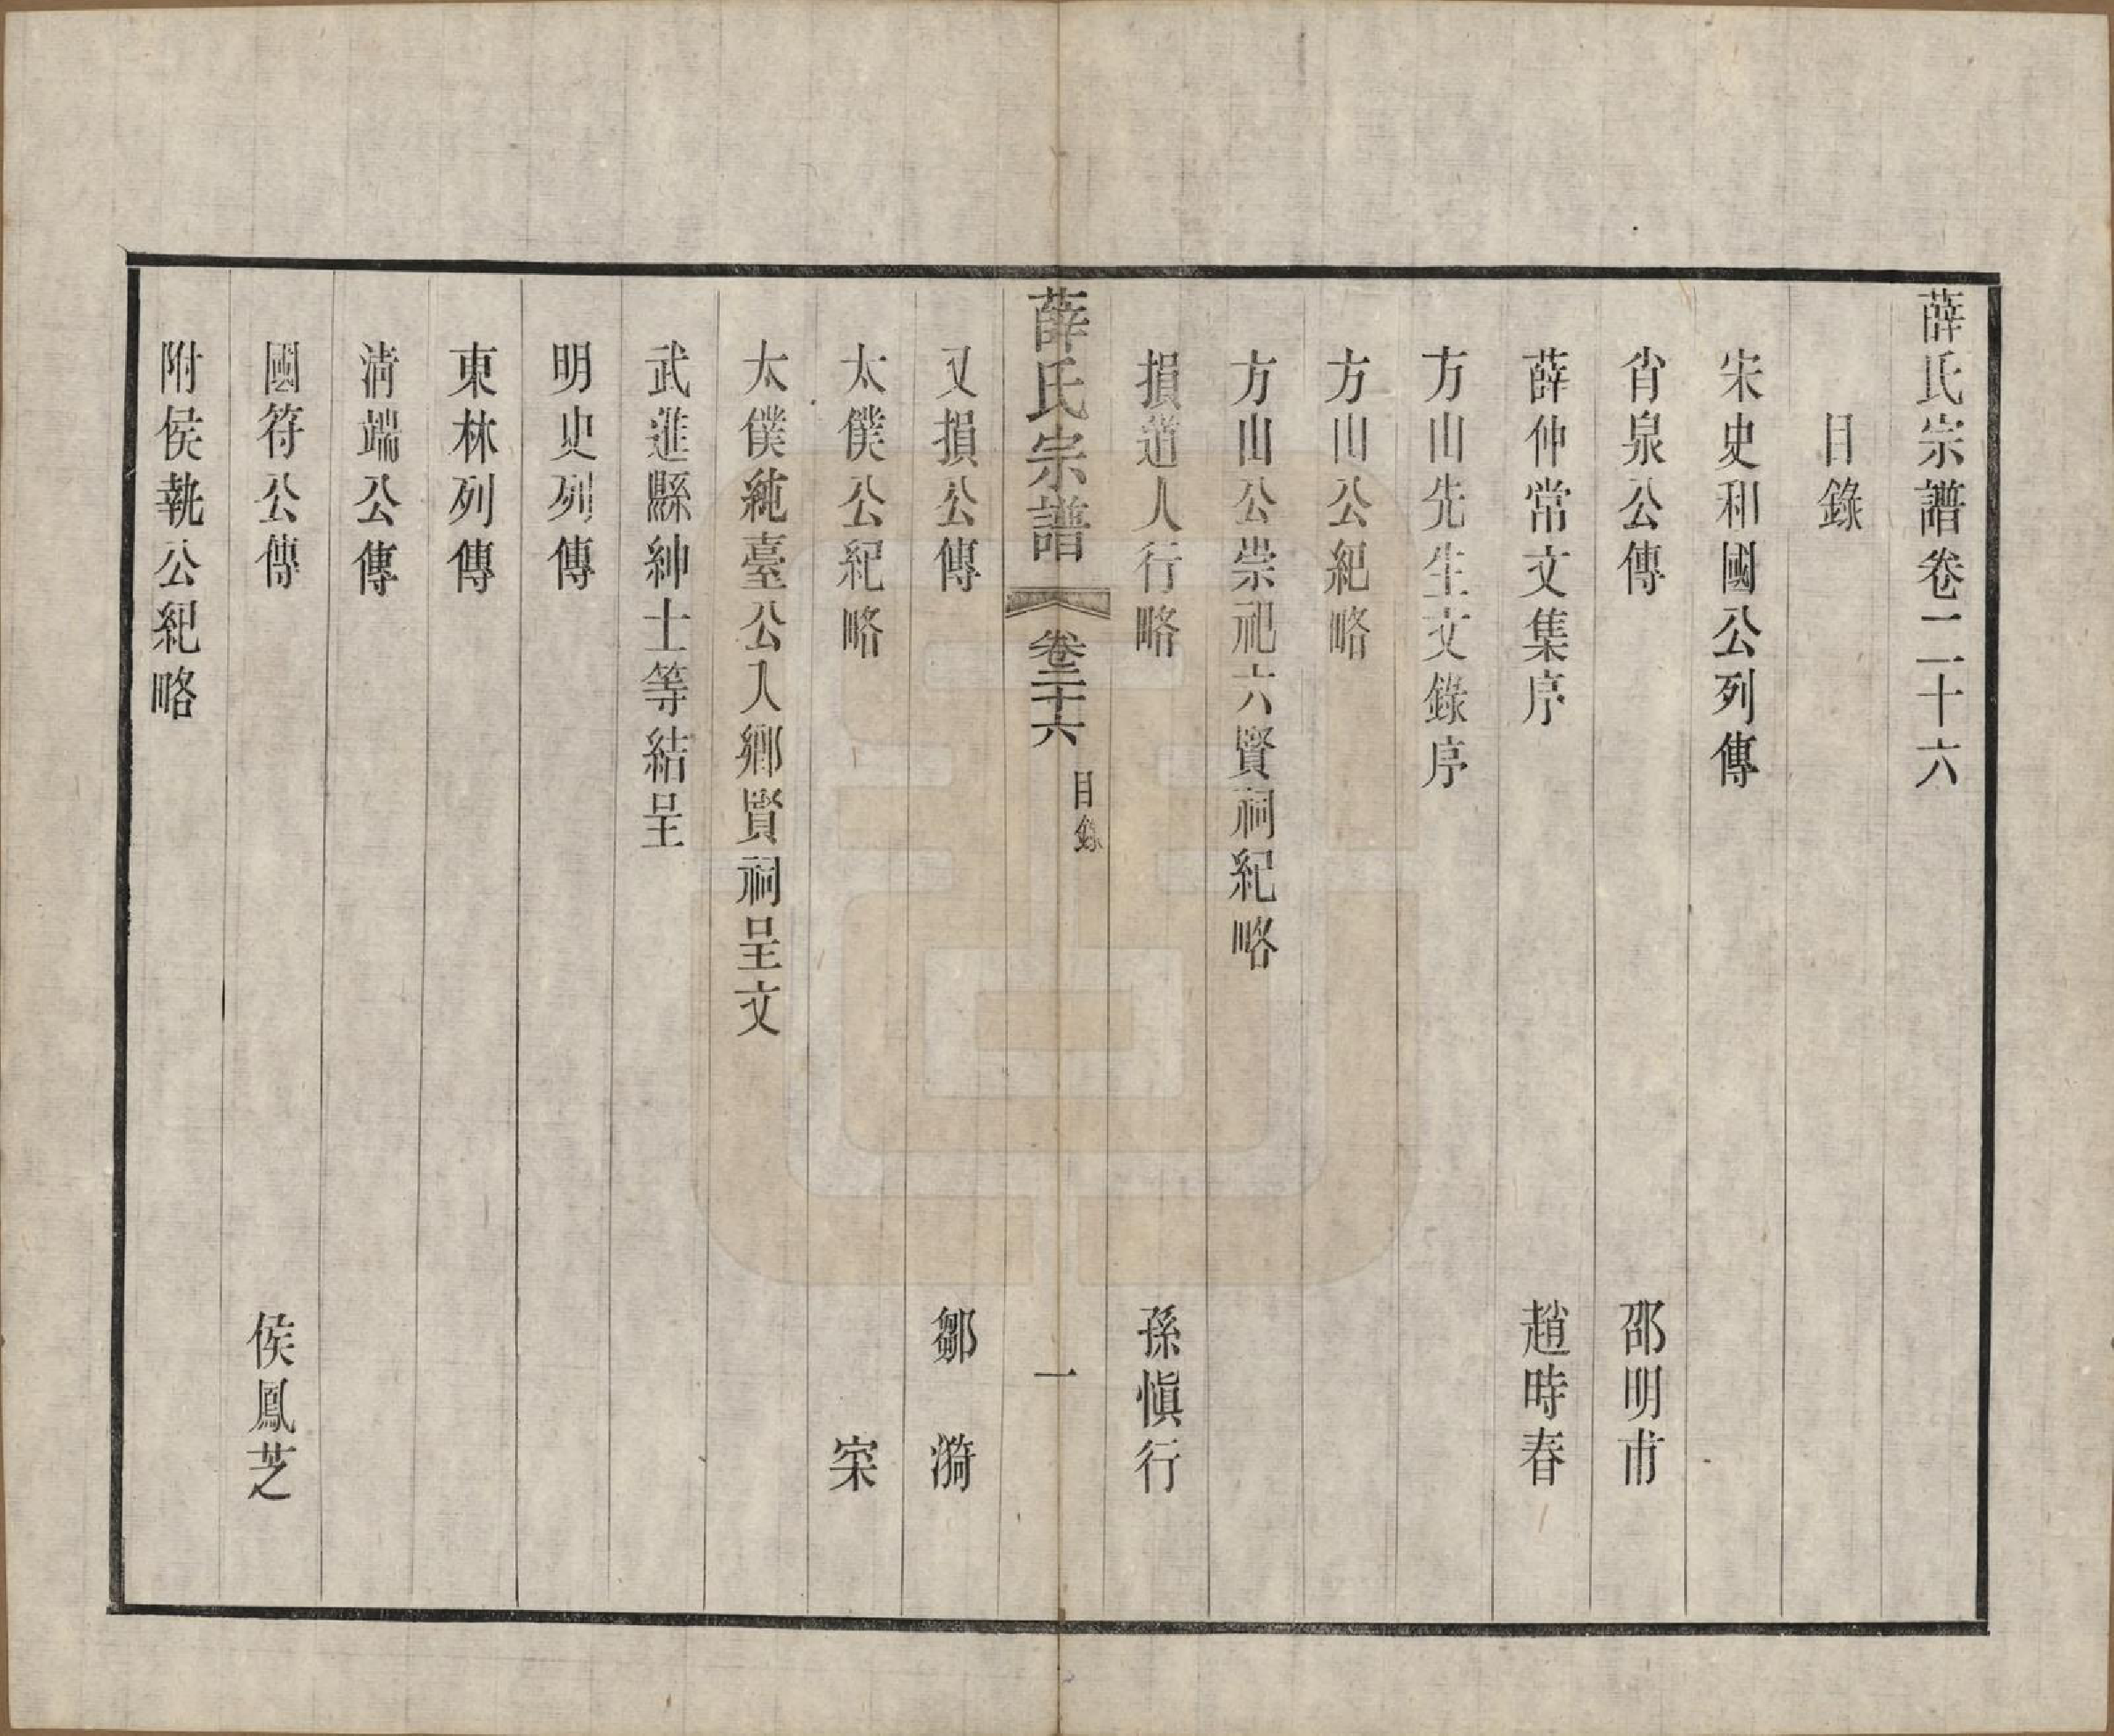 薛氏宗譜卷二十六
目錄
宋史和國公列傳
肖泉公傳 邵明甫
薛仲常文集序 趙時春
方山先生文錄序
方山公紀略
方山公崇祀六賢祠紀略
損道人行略 孫愼行
薛氏宗譜 卷二十六 目錄 一
又損公傳 鄒漪
太僕公紀略 寀
太僕純臺公入鄉賢祠呈文
武進縣紳士等結呈
明史列傳
東林列傳
淸端公傳
國符公傳 侯鳳芝
附侯執公紀略